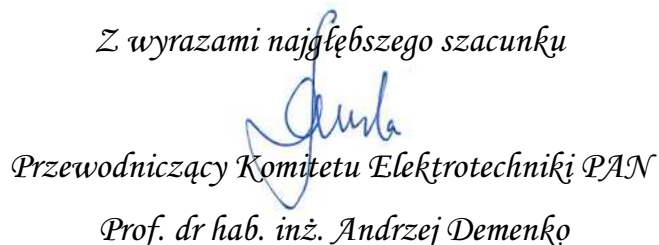 Z wyrazami najgłębszego szacunku
Przewodniczący Komitetu Elektrotechniki PAN
Prof. dr hab. inż. Andrzej Demenko